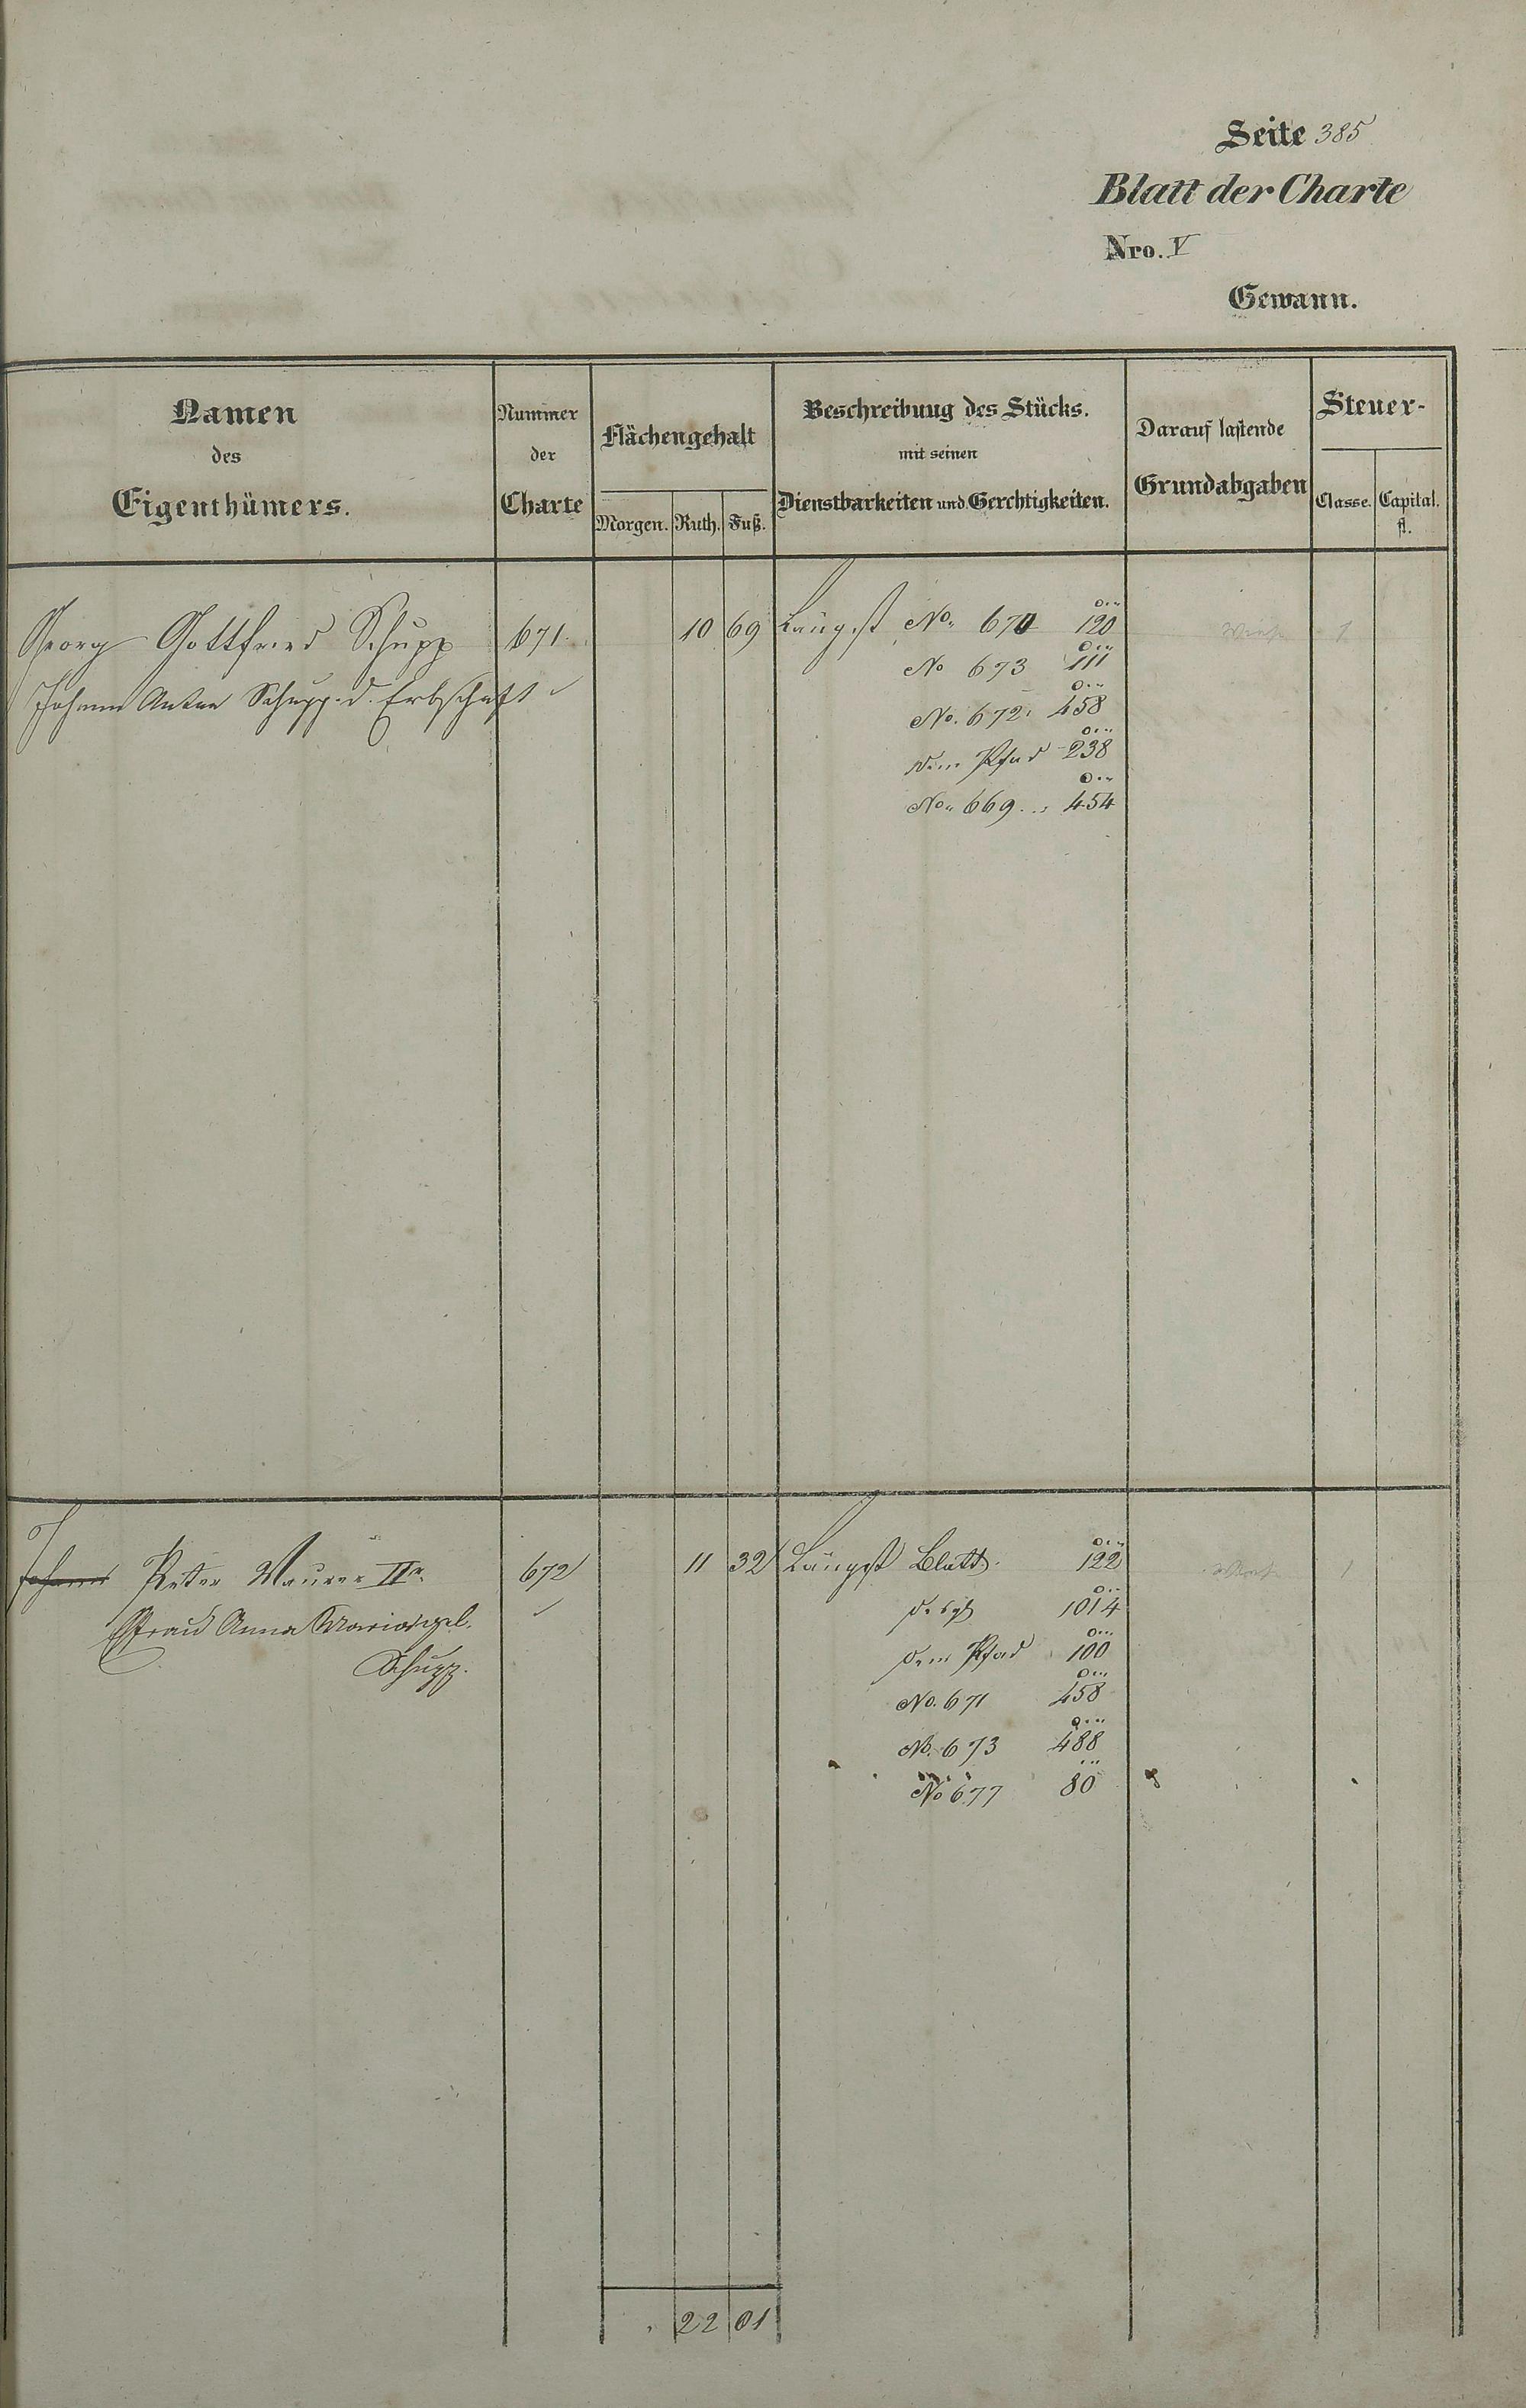 Seite 385
Blatt der Charte
Nro. V
Gewann.
Namen des Eigenthümers.
Nummer der Charte
Flächengehalt
Morgen. Ruth. Fuß.
Beschreibung des Stücks. mit seinen Dienstbarkeiten und Gerchtigkeiten.
Darauf lastende Grundabgaben
Steuer-
Classe. Capital. fl.
Georg Gottfried Schupp 671. 10 69 Längst No. 670 120 Wiese 1
No 673 111
Johann Anton Schupp d. Erbschaft
No. 672. 458
dem Pfad 238
No. 669 454
Johann Peter Maurer IIr 672 11 32 Längst Blatt. 122 Wiese 1
Ehfrau Anna Maria gel. dsgl 1014
Schupp. dem Pfad 100
No. 671 458
No. 673 488
No 677 80
22 01